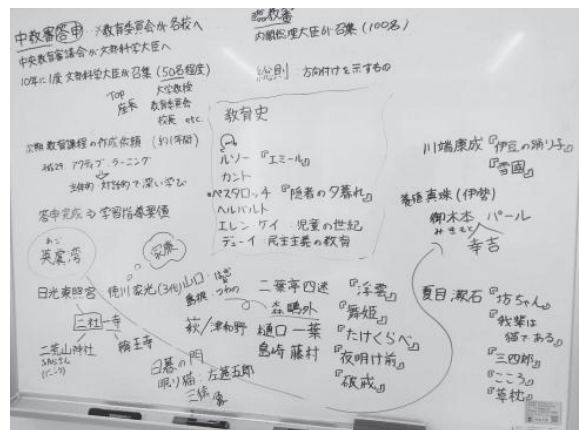 中教審答申 → 教育委員会が各校へ
中央教育審議会が文部科学大臣へ
10年に1度 文部科学大臣が召集(50名程度)
Top
座長
大学教授
教育委員会
校長 etc.
次期教育課程の作成依頼 (約1年間)
アクティブ・ラーニング
主体的・対話的で深い学び
答申完成→学習指導要領
臨教審
内閣総理大臣が召集(100名)
総則:方向付けを示すもの
教育史
ルソー『エミール』
カント
•ペスタロッチ『隠者の夕暮れ』
ヘルバルト
エレン・ケイ 児童の世紀
デューイ 民主主義の教育
川端康成『伊豆の踊り子』
『雪國』
養殖真珠(伊勢)
御木本 パール
みきもと
幸吉
あご
英虞湾
家康
日光東照宮 徳川家光(3代)
二社一寺
二荒山神社
輪王寺
日暮の門
眠り猫:左甚五郎
三猿
山口:はぎ
島根:つわの
萩/津和野
二葉亭四迷『浮雲』
森鴎外『舞姫』
樋口一葉『たけくらべ』
島崎藤村『夜明け前』
『破戒』
夏目漱石『坊ちゃん』
『我輩は
猫である』
『三四郎』
『こころ』
『草枕』